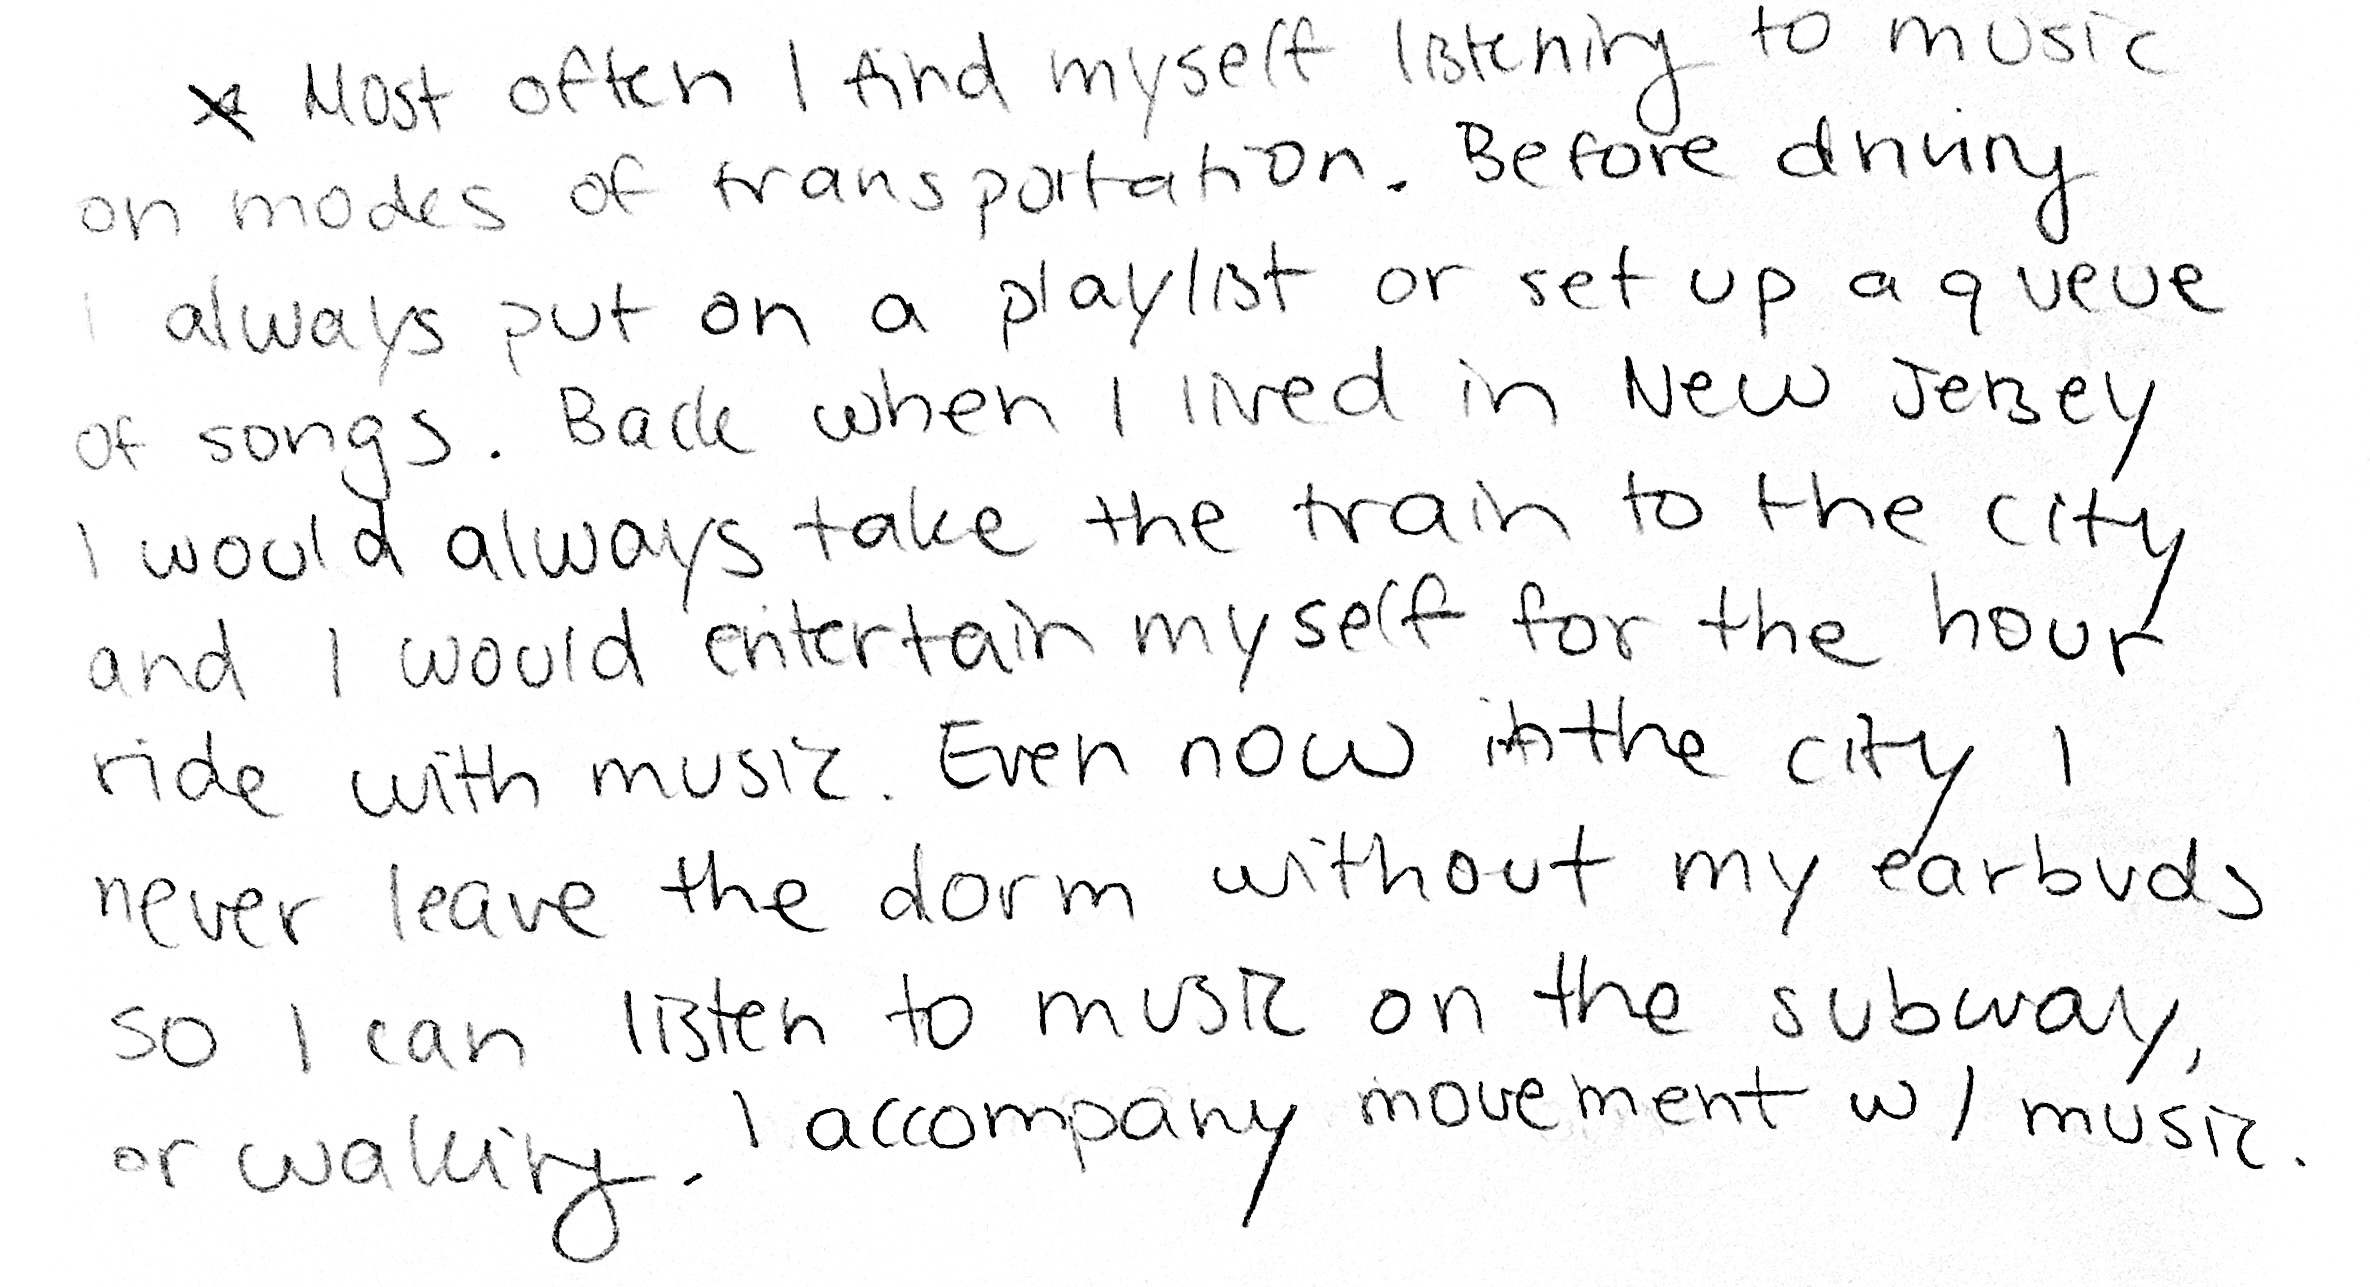 x Most often I find myself listening to music
on modes of transportation. Before driving
I always put on a playlist or set up a queue
of songs. Back when I lived in New Jersey
I would always take the train to the city
and I would entertain myself for the hour
ride with music. Even now in the city I
never leave the dorm without my earbuds
so I can listen to music on the subway,
or walking. I accompany movement w/ music.